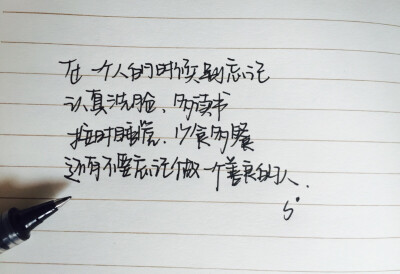 在一个人的时候别忘记
认真洗脸、多读书
按时睡觉、少食多餐
还有不要忘记做一个善良的人.